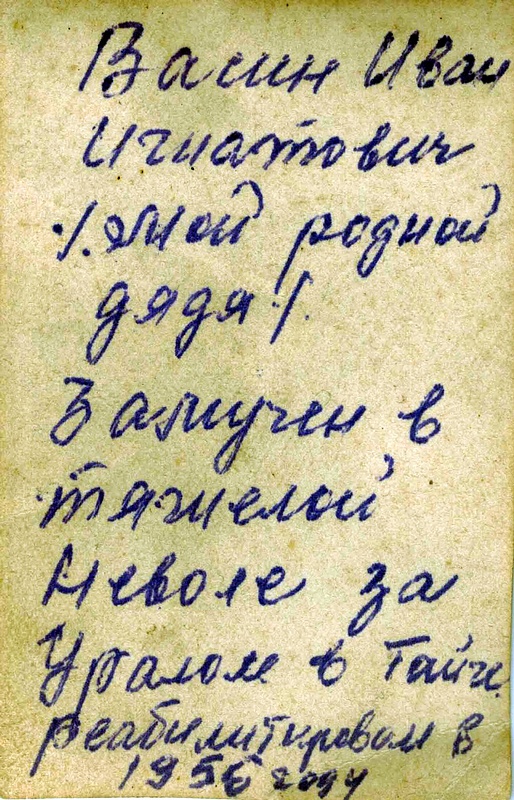 Васин Иван
Игнатович
·/. Мой родной
дядя ·/.
Замучен в
тяжелой
Неволе за
Уралом в Тайге
реабилитирован в
1956 году